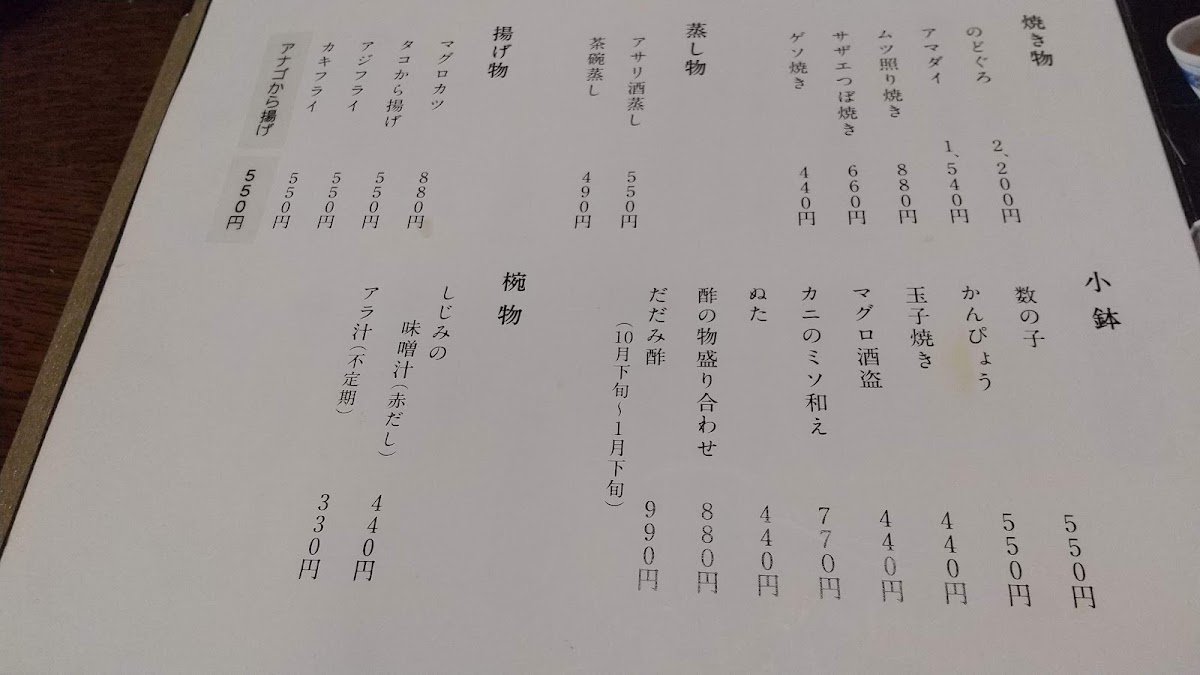 焼き物
のどぐろ 2、200円
アマダイ 1、540円
ムツ照り焼き 880円
サザエつぼ焼き 660円
ゲソ焼き 440円
蒸し物
アサリ酒蒸し 550円
茶碗蒸し 490円
揚げ物
マグロカツ 880円
タコから揚げ 550円
アジフライ 550円
カキフライ 550円
アナゴから揚げ 550円
小鉢
数の子 550円
かんぴょう 550円
玉子焼き 440円
マグロ酒盗 440円
カニのミソ和え 770円
ぬた 440円
酢の物盛り合わせ 880円
だだみ酢 990円
(10月下旬～1月下旬)
椀物
しじみの
味噌汁(赤だし) 440円
アラ汁(不定期) 330円